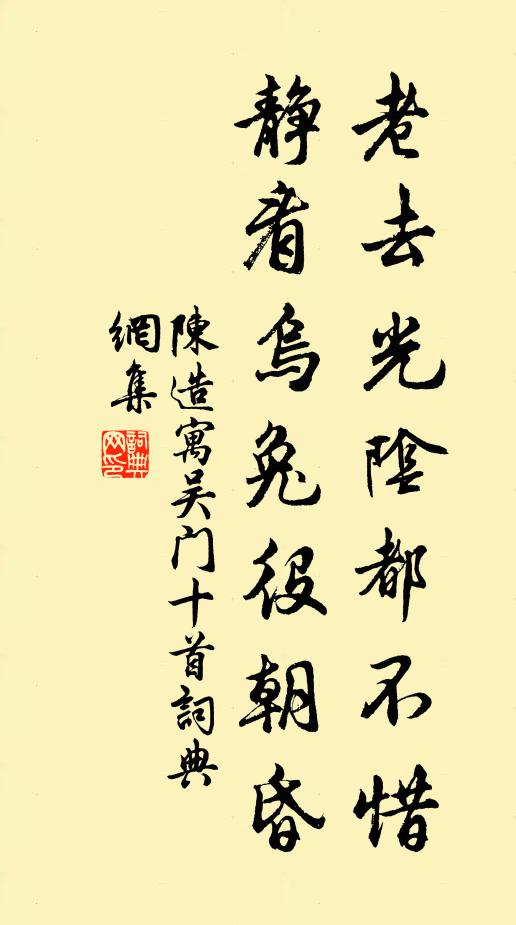 老去光陰都不惜
靜看烏兔役朝昏
陳造寓吴门十首詞典
網集
詞典
网印